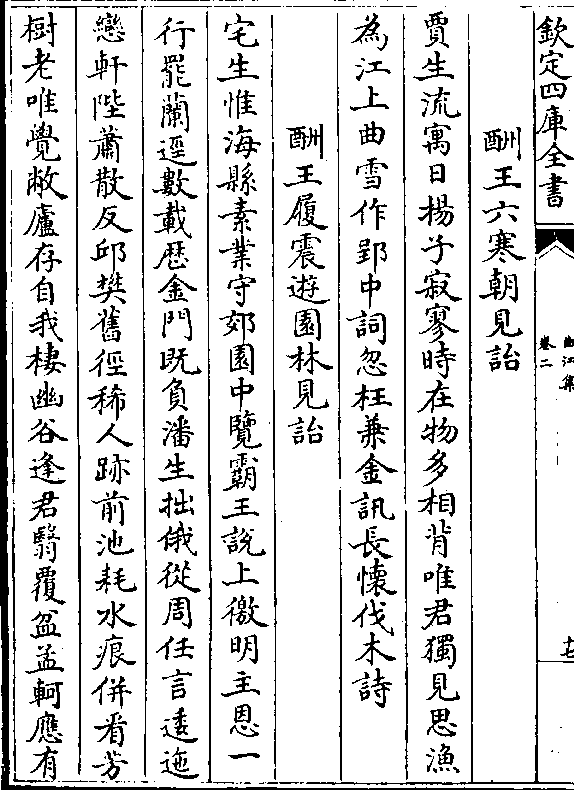 欽定四庫全書
曲江集
卷二
十七
酬王六寒朝見詒
賈生流寓日揚子寂寥時在物多相背唯君獨見思漁
為江上曲雪作郢中詞忽枉兼金訊長懷伐木詩
酬王履震遊園林見詒
宅生惟海縣素業守郊園中覽霸王說上徼明主恩一
行罷蘭逕數載歴金門既負潘生拙俄從周任言逶迤
戀軒陛蕭散反邱樊舊徑稀人跡前池耗水痕併看芳
樹老唯覺敝廬存自我棲幽谷逢君翳覆盆孟軻應有